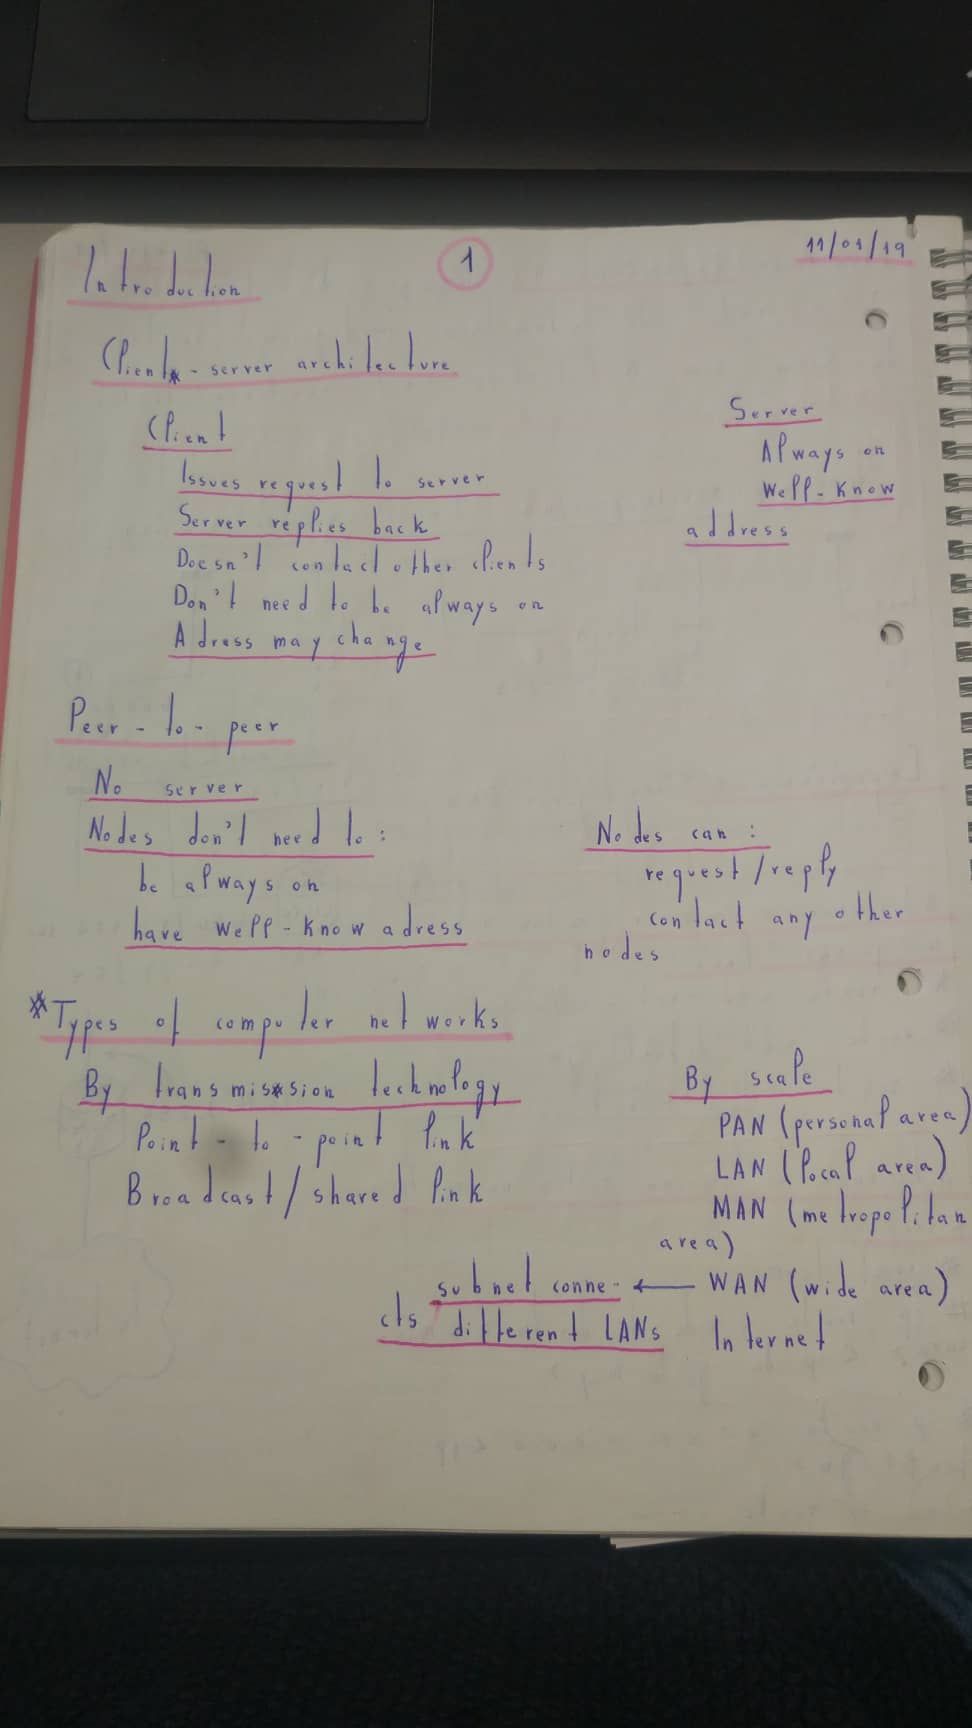 Introduction
1
11/01/19
Client-server architecture
Client
Issues request to server
Server replies back
Doesn't contact other clients
Don't need to be always on
Adress may change
Server
Always on
Well-know
address
Peer-to-peer
No server
Nodes don't need to:
be always on
have well-know adress
Nodes can:
request/reply
contact any other
nodes
*Types of computer networks
By transmission technology
Point-to-point link
Broadcast/shared link
By scale
PAN (personal area)
LAN (local area)
MAN (metropolitan
area)
subnet conne- ← WAN (wide area)
cts different LANs
Internet